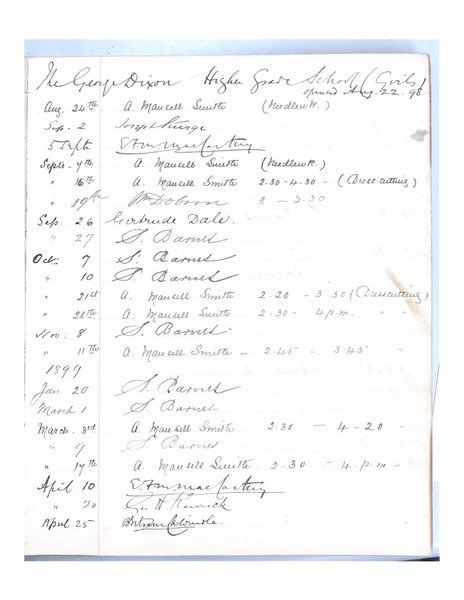 The George Dixon Higher Grade School (Girls)
opened Aug. 22. 98
Aug. 24th A. Mansell Smith (Needlewk.)
Sep. 2 Joseph Sturge
5 Sept E. F. M. MacCarthy
Sept. 7th A. Mansell Smith (Needlewk.)
" 16th A. Mansell Smith 2.30-4.30 - (Dresscutting)
" 19th Wm Dobson 3 - 3.30
Sep. 26 Gertrude Dale.
" 27 S. Barnes
Oct. 7 S. Barnes
" 10 S. Barnes
" 21st A. Mansell Smith 2.20 - 3.50 (Dresscutting)
" 28th A. Mansell Smith 2.30 - 4 p.m. " "
Nov: 8 S. Barnes
" 11th A. Mansell Smith - 2.45 - 3.45 "
1899
Jan 20 S. Barnes
March 1 S. Barnes
March. 3rd A. Mansell Smith 2.30 - 4-20 -
" 9 S. Barnes
" 17th A. Mansell Smith 2.30 - 4.p.m -
April 10 E. F. M. MacCarthy
" 20 Geo H. Kenrick
April 25 Bertram